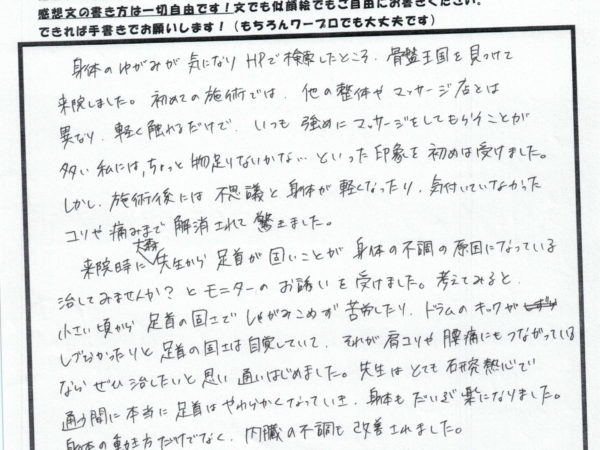 感想文の書き方は一切自由です！文でも似顔絵でもご自由にお書きください。
できれば手書きでお願いします！（もちろんワープロでも大丈夫です）
身体のゆがみが気になり HPで検索したところ、骨盤王国を見つけて
来院しました。初めての施術では、他の整体やマッサージ店とは
異なり、軽く触れるだけで、いつも強めにマッサージをしてもらうことが
多い私には、ちょっと物足りないかな…といった印象を初めは受けました。
しかし、施術後には不思議と身体が軽くなったり、気付いていなかった
コリや痛みまで解消されて驚きました。
来院時に大森先生から足首が固いことが身体の不調の原因になっている
治してみませんか？とモニターのお誘いを受けました。考えてみると、
小さい頃から足首の固さでしゃがみこめず苦労したり、ドラムのキックが
しづらかったりと足首の固さは自覚していて、それが肩コリや腰痛にもつながっている
ならぜひ治したいと思い通いはじめました。先生はとても研究熱心で
通う間に本当に足首はやわらかくなっていき、身体もだいぶ楽になりました。
身体の動き方だけでなく、内臓の不調も改善されました。